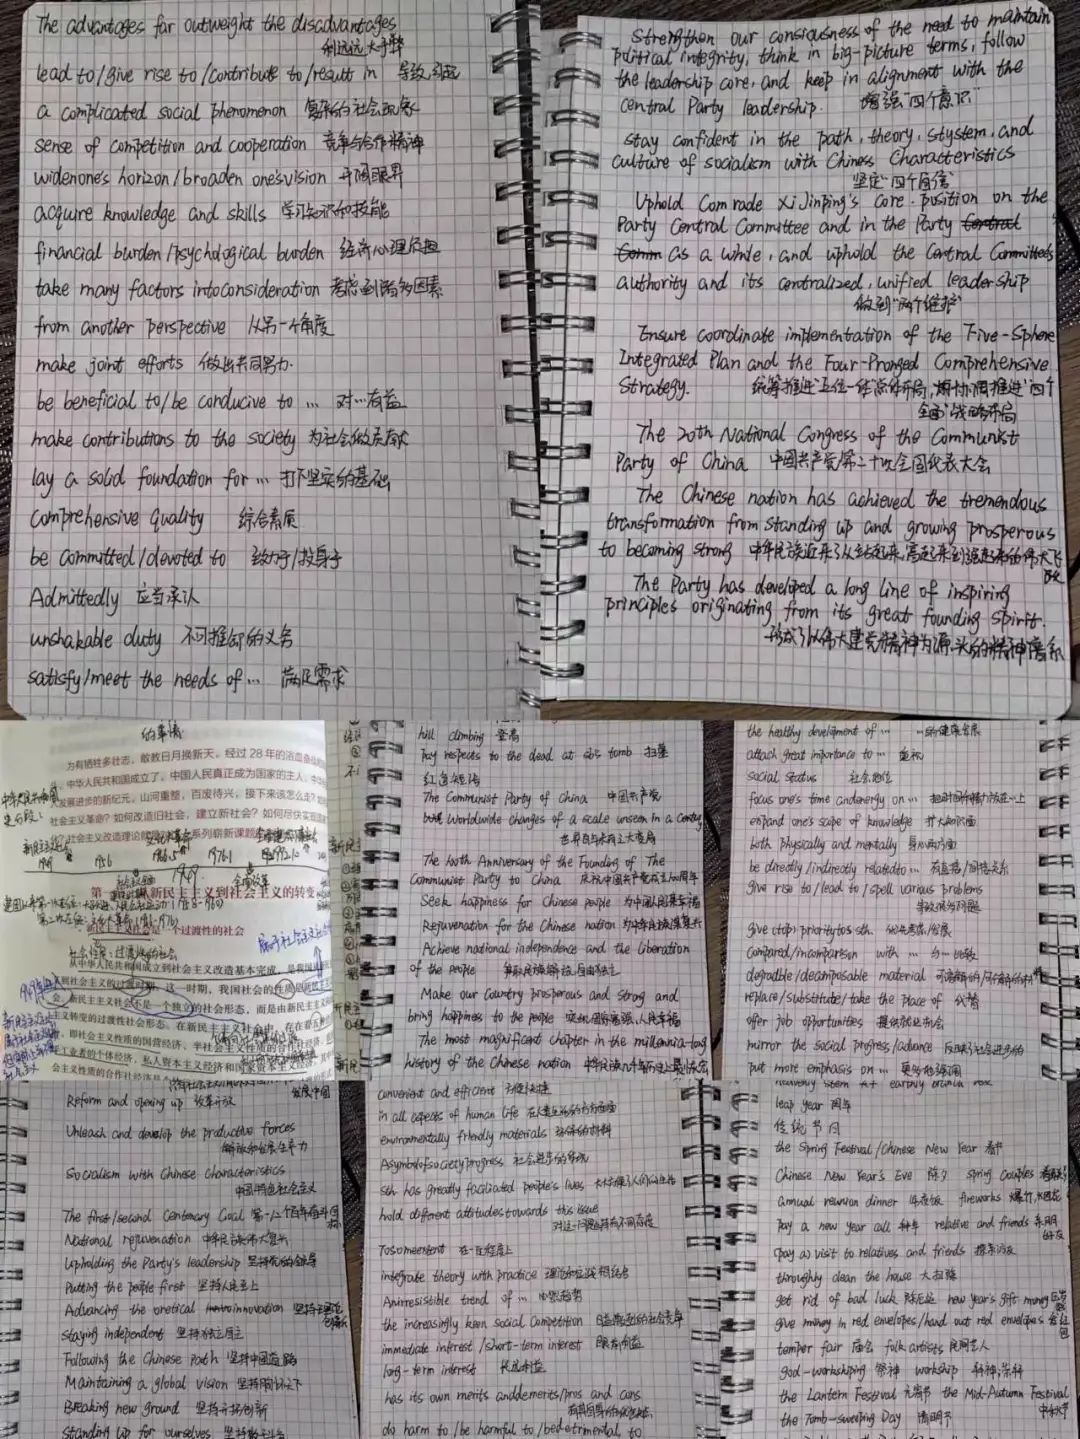 The advantages far outweight the disadvantages
利远远大于弊
lead to/give rise to/contribute to/result in 导致,引起
a complicated social phenomenon 复杂的社会现象
sense of competition and cooperation 竞争与合作精神
widenone's horizon/broaden one'svision 开阔眼界
acquire knowledge and skills 学习知识和技能
financial burden/psychological burden 经济心理负担
take many factors intoconsideration 考虑到诸多因素
from another perspective 从另一个角度
make joint efforts 做出共同努力.
be beneficial to/be conducive to ... 对...有益
make contributions to the society 为社会做贡献
lay a solid foundation for ... 打下坚实的基础
Comprehensive quality 综合素质
be committed/devoted to 致力于/投身于
Admittedly 应当承认
unshakable duty 不可推卸的义务
satisfy/meet the needs of ... 满足需求
Strengthen our consiousness of the need to maintain
political integrity, think in big-picture terms, follow
the leadership core, and keep in alignment with the
central Party leadership. 增强"四个意识"
stay confident in the path, theory, system, and
culture of socialism with Chiness Characteristics
坚定"四个自信"
Uphold Comrade Xi Jinping's core position on the
Party Central Committee and in the Party
as a while, and uphold the Central Committee's
authority and its centralized, unified leadership
做到"两个维护"
Ensure coordinate implementation of the Five-Sphere
Integrated Plan and the Four-Pronged Comprehensive
Strategy. 统筹推进"五位一体"总体布局,协调推进"四个
全面"战略布局
The 20th National Congress of the Communist
Party of China 中国共产党第二十次全国代表大会
The Chinese nation has achieved the tremendous
transformation from standing up and growing prosperous
to becoming strong 中华民族迎来了从站起来,富起来到强起来的伟大飞
跃
The Party has developed a long line of inspiring
principles originating from its great founding spirit.
形成了以伟大建党精神为源头的精神谱系
的事情
为有牺牲多壮志,敢教日月换新天。经过 28 年的浴血奋战
中华人民共和国成立了,中国人民真正成为国家的主人,
发展进步的新纪元,山河重整,百废待兴,接下来该怎么走?
社会主义革命?如何改造旧社会,建立新社会?如何尽快实现
社会主义改造理论
1949 1956 1966.5 1976.1
从新民主主义到社会主义的转变
是一个过渡性的社会
从中华人民共和国成立到社会主义改造基本完成,是我国
到社会主义的过渡时期。这一时期,我国社会的性质是
会。新民主主义社会不是一个独立的社会形态,而是由新民主主义
主义转变的过渡性社会形态。在新民主主义社会中,存在着五种
,即社会主义性质的国营经济、半社会主义性质的合作社经济、
工业者的个体经济、私人资本主义经济和国家资本主义经济
会主义性质的合作社经济
hill climbing 登高
Pay respects to the dead at sb's tomb 扫墓
红色短语
The Communist Party of China 中国共产党
Worldwide changes of a scale unseen in a century
世界百年未有之大变局
The 100th Anniversary of the Founding of The
Communist Party to China 庆祝中国共产党成立100周年
Seek happiness for Chinese people 为中国人民谋幸福
Rejuvenation for the Chinese nation 为中华民族谋复兴
Achieve national independence and the liberation
of the people 争取民族解放,自由独立
Make our country prosperous and strong and
bring happiness to the people 实现国家富强,人民幸福
The most magnificent chapter in the millennia-long
history of the Chinese nation
the healthy development of ... ...的健康发展
attach great importance to ... 重视
social status 社会地位
focus one's time andenergy on ... 把时间和精力放在...上
expand one's scope of knowledge 扩大知识面
both physically and mentally 身心两方面
be directly/indirectly relatedto ... 有直接/间接关系
give rise to/lead to/spell various problems
导致很多问题
give (top) priority to sth. 优先考虑/发展
compared/incomparison with ... 与...比较
degradable/decomposable material
replace/substitute/take the place of 代替
offer job opportunities 提供就业机会
mirror the social progress/advance 反映了社会进步的
put more emphasis on ... 更多的强调
发展中国
Reform and opening up 改革开放
Unleash and develop the productive forces
解放和发展生产力
Socialism with Chinese Characteristics
中国特色社会主义
The first/second Centenary Goal 第一/二个百年奋斗目标
National rejuvenation 中华民族伟大复兴
Upholding the Party's leadership 坚持党的领导
Putting the people first 坚持人民至上
Advancing the oretical innovation 坚持理论
创新
Staying independent 坚持独立自主
Following the Chinese path 坚持中国道路
Maintaining a global vision 坚持胸怀天下
Breaking new ground 坚持开拓创新
Standing up for ourselves 坚持敢于斗争
convenient and efficient 方便快捷
in all aspects of human life 在人类生活的方方面面
environmentally friendly materials 环保的材料
Asymbolofsociety progress 社会进步的体现
sth has greatly faciliated people's lives 大大方便了人们的生活
hold different attitudestowards this issue
对这一问题持有不同态度
Tosomeextent 在一定程度上
integrate theory with practice 理论和实践相结合
Anirresistible trend of ... 必然趋势
the increasingly keen social Competition 日益激烈的社会竞争
immediate interest/short-term interest 眼前利益
long-term interest 长远利益
has its own merits anddemerits/pros and cons
有其自身的优缺点
do harm to/be harmful to/be detrimental to
heavenly stem 天干 earthly branch 地支
leap year 闰年
传统节日
the Spring Festival/Chinese New Year 春节
Chinese New Year's Eve 除夕 spring couples 春联
annual reunion dinner 年夜饭 fireworks 爆竹,烟花
Pay a new year call 拜年 relative and friends 亲朋
好友
pay a visit to relatives and friends 探亲访友
throughly clean the house 大扫除
get rid of bad luck 除厄运 new year's gift money 压岁钱
give money in red envelopes/hand out red envelopes 发红包
temper fair 庙会 folk artists 民间艺人
god-workshiping 祭神 workship
the Lantern Festival 元宵节 the Mid-Autumn Festival
中秋节
the Tomb-sweeping Day 清明节